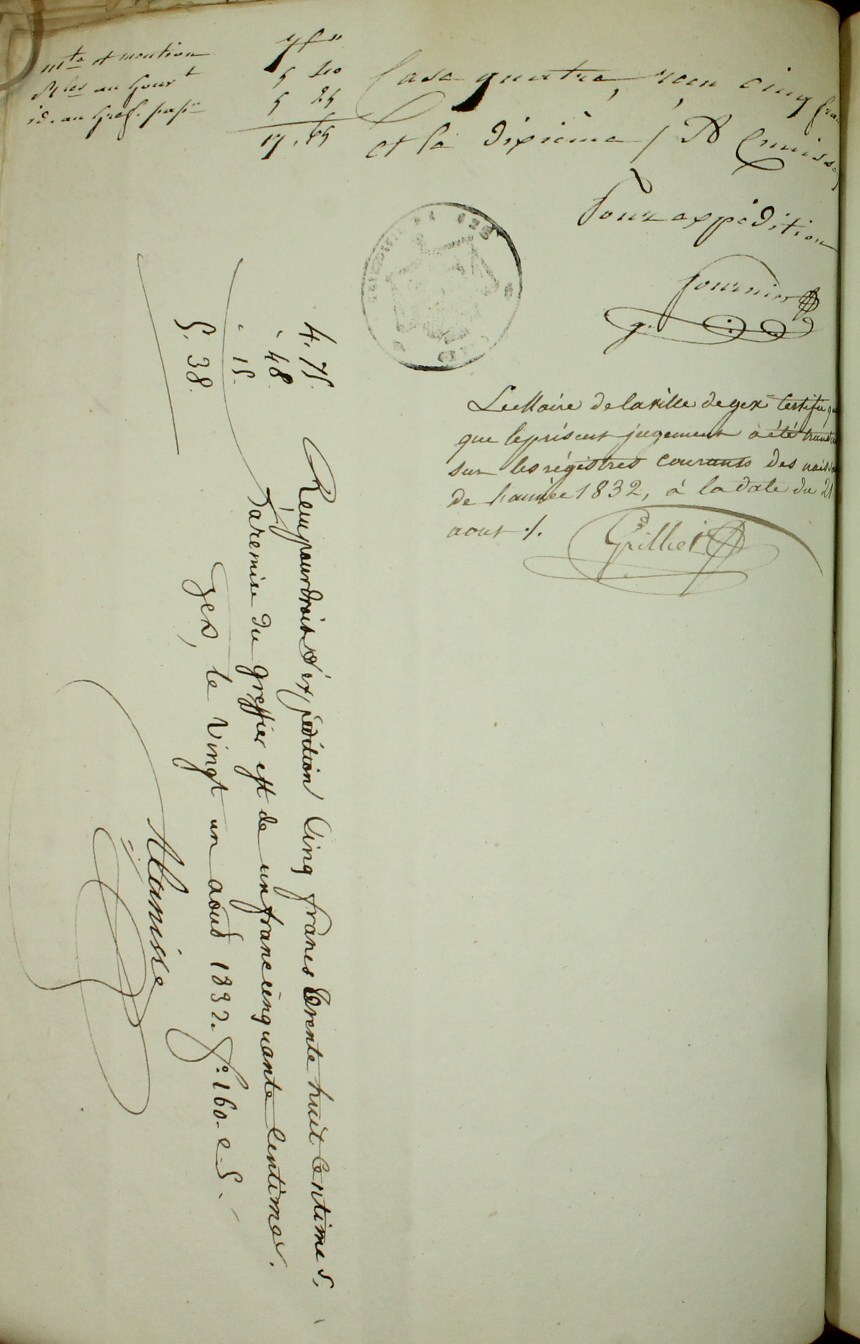 mte et mention
Rles au Gouvt
id. au Gref. papr
5 40
5 25
17,65
Case quatre, reçu cinq
et le dixième / A Canisse
Pour expédition
fournier
g.
Le Maire de la ville de gex Certifie
que le présent jugement a été
sur les régistres courants des
de l'année 1832, à la date du 21
aout ./.
Grilliet
4. 75.
. 48.
. 15.
5. 38.
Reçu pour droit d'expédition Cinq francs trente huit centimes,
La remise du greffier est de un franc cinquante Centimes.
Gex, le vingt un aout 1832. fo. 160. c 5. -
A Canisse